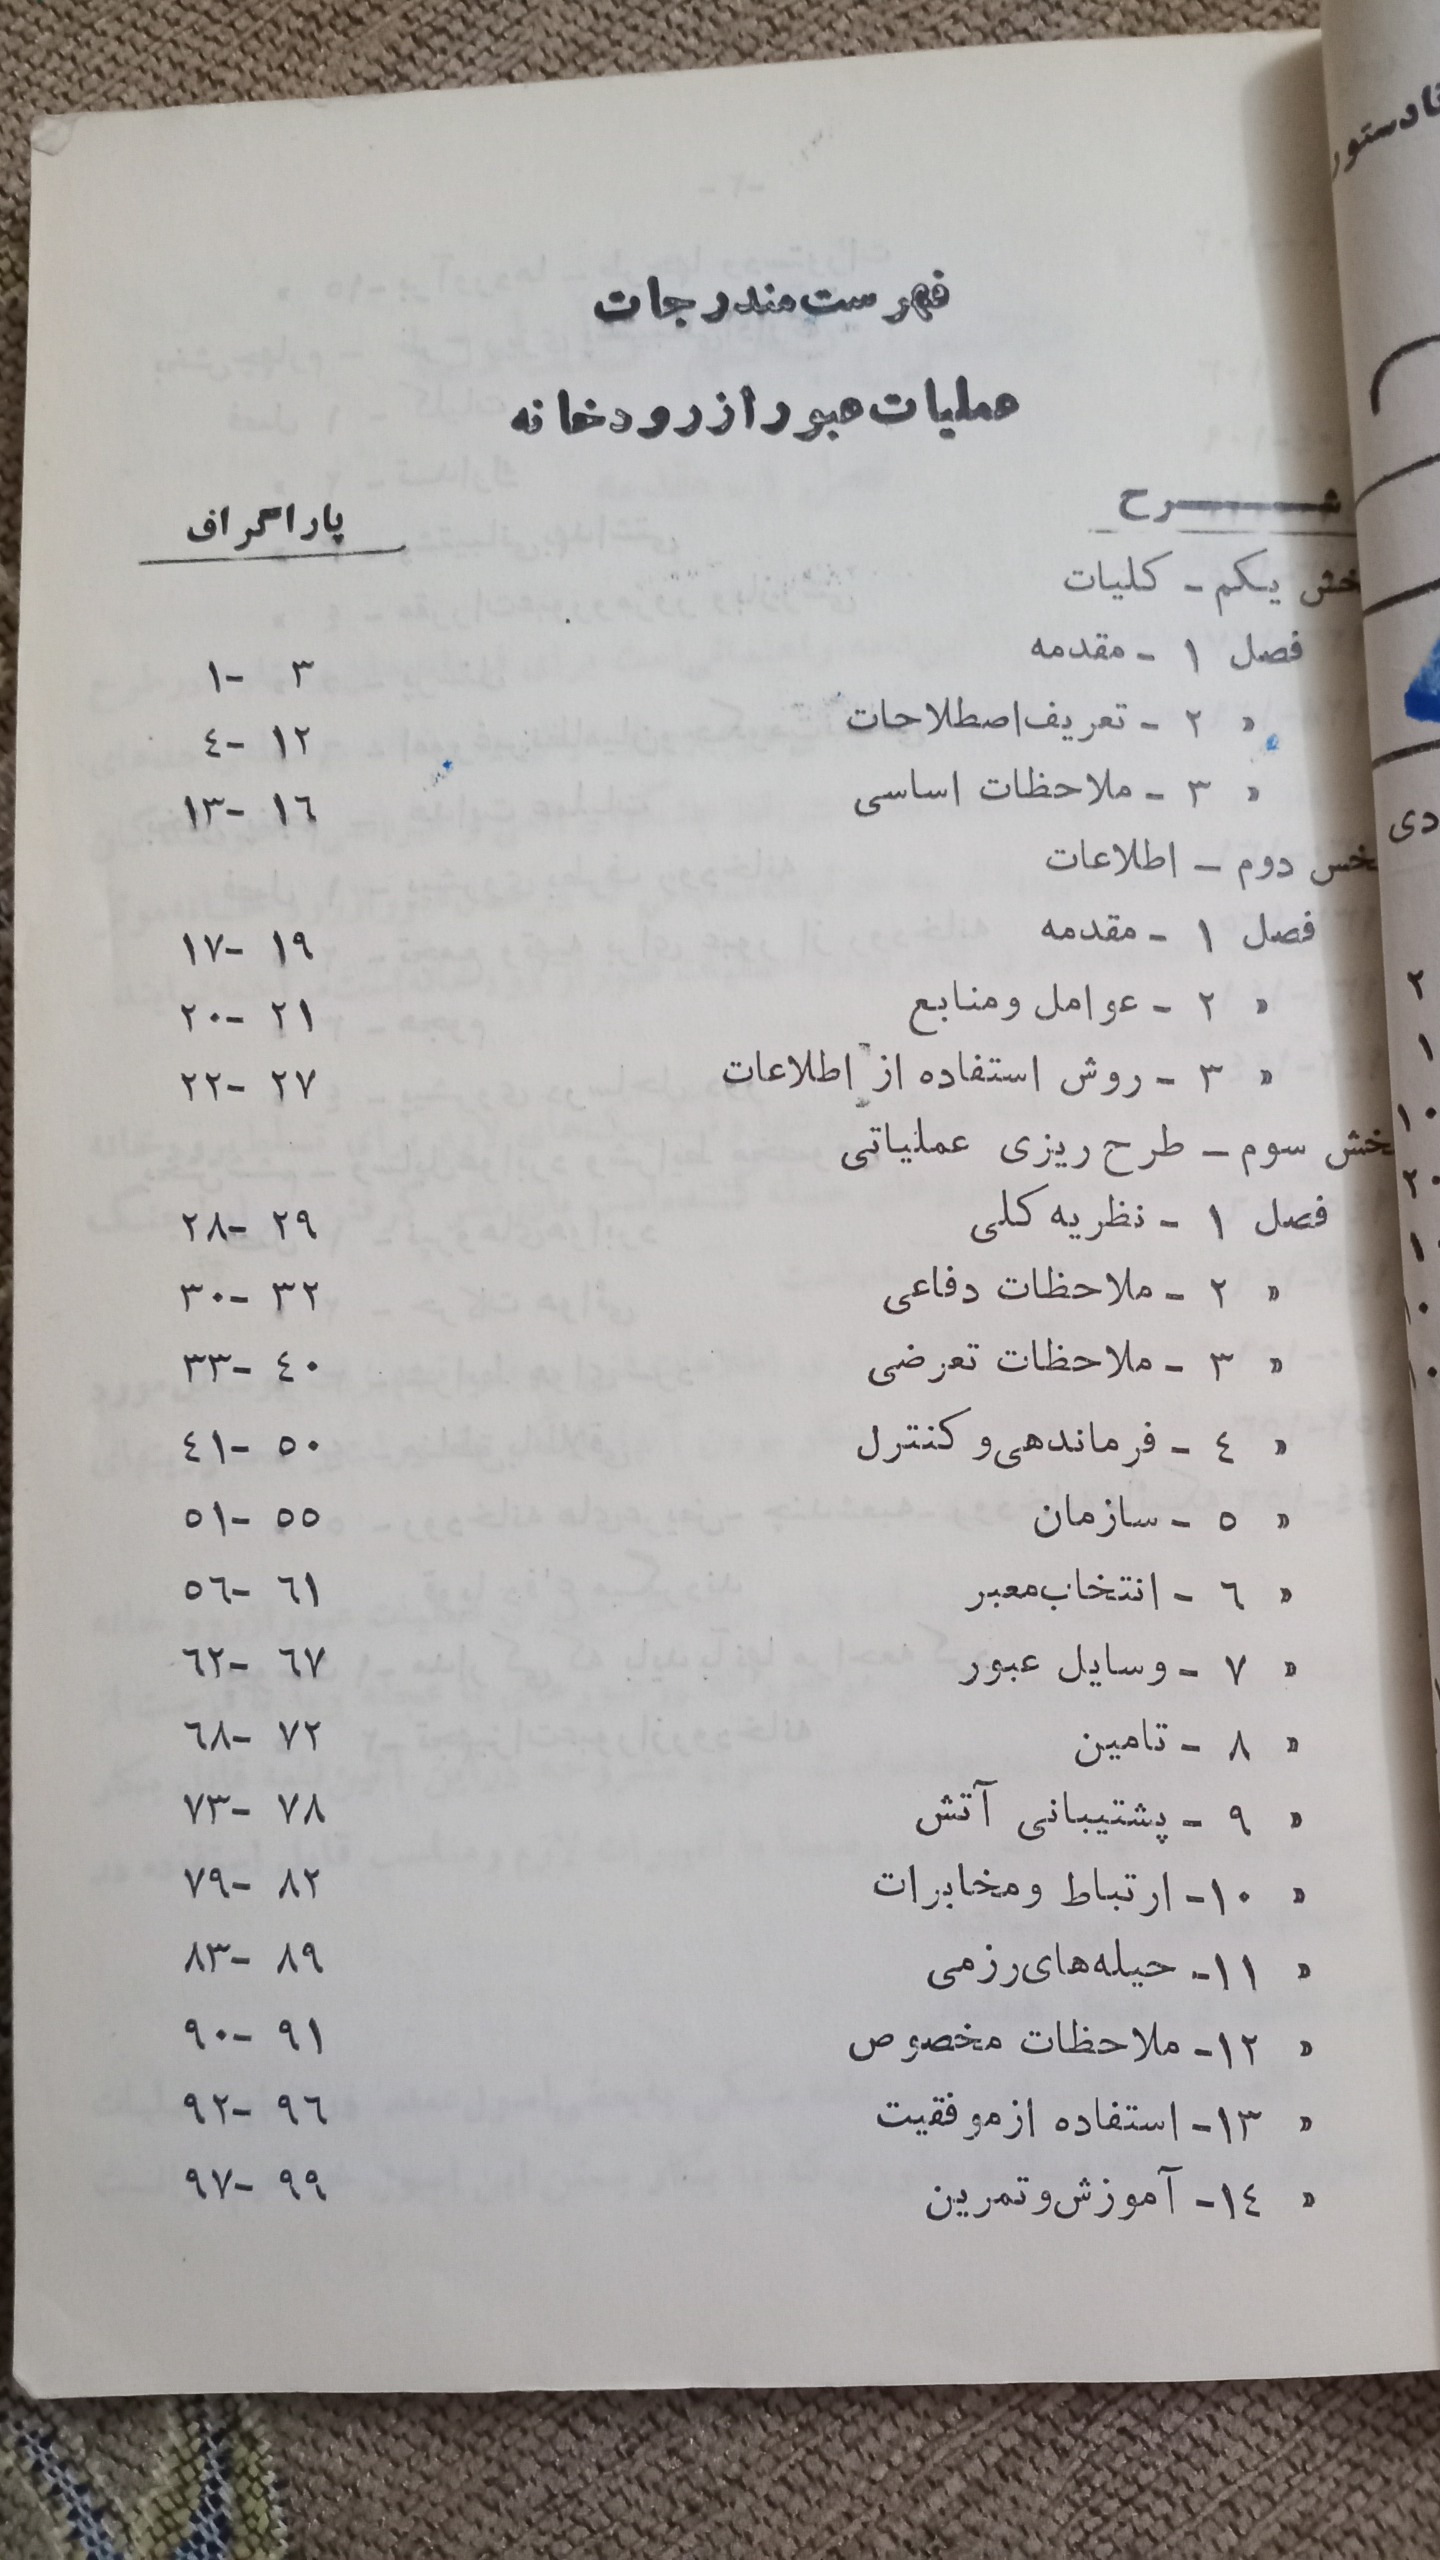 فهرست مندرجات
عملیات عبور از رودخانه
شرح پاراگراف
بخش یکم - کلیات
فصل ۱ - مقدمه ۱- ۳
« ۲ - تعریف اصطلاحات ٤- ۱۲
« ۳ - ملاحظات اساسی ۱۳- ۱٦
بخش دوم - اطلاعات
فصل ۱ - مقدمه ۱۷- ۱۹
« ۲ - عوامل و منابع ۲۰- ۲۱
« ۳ - روش استفاده از اطلاعات ۲۲- ۲۷
بخش سوم - طرح ریزی عملیاتی
فصل ۱ - نظریه کلی ۲۸- ۲۹
« ۲ - ملاحظات دفاعی ۳۰- ۳۲
« ۳ - ملاحظات تعرضی ۳۳- ٤۰
« ٤ - فرماندهی و کنترل ٤۱- ۵۰
« ۵ - سازمان ۵۱- ۵۵
« ٦ - انتخاب معبر ۵٦- ٦۱
« ۷ - وسایل عبور ٦۲- ٦۷
« ۸ - تامین ٦۸- ۷۲
« ۹ - پشتیبانی آتش ۷۳- ۷۸
« ۱۰- ارتباط و مخابرات ۷۹- ۸۲
« ۱۱- حیله های رزمی ۸۳- ۸۹
« ۱۲- ملاحظات مخصوص ۹۰- ۹۱
« ۱۳- استفاده از موفقیت ۹۲- ۹٦
« ۱٤- آموزش و تمرین ۹۷- ۹۹